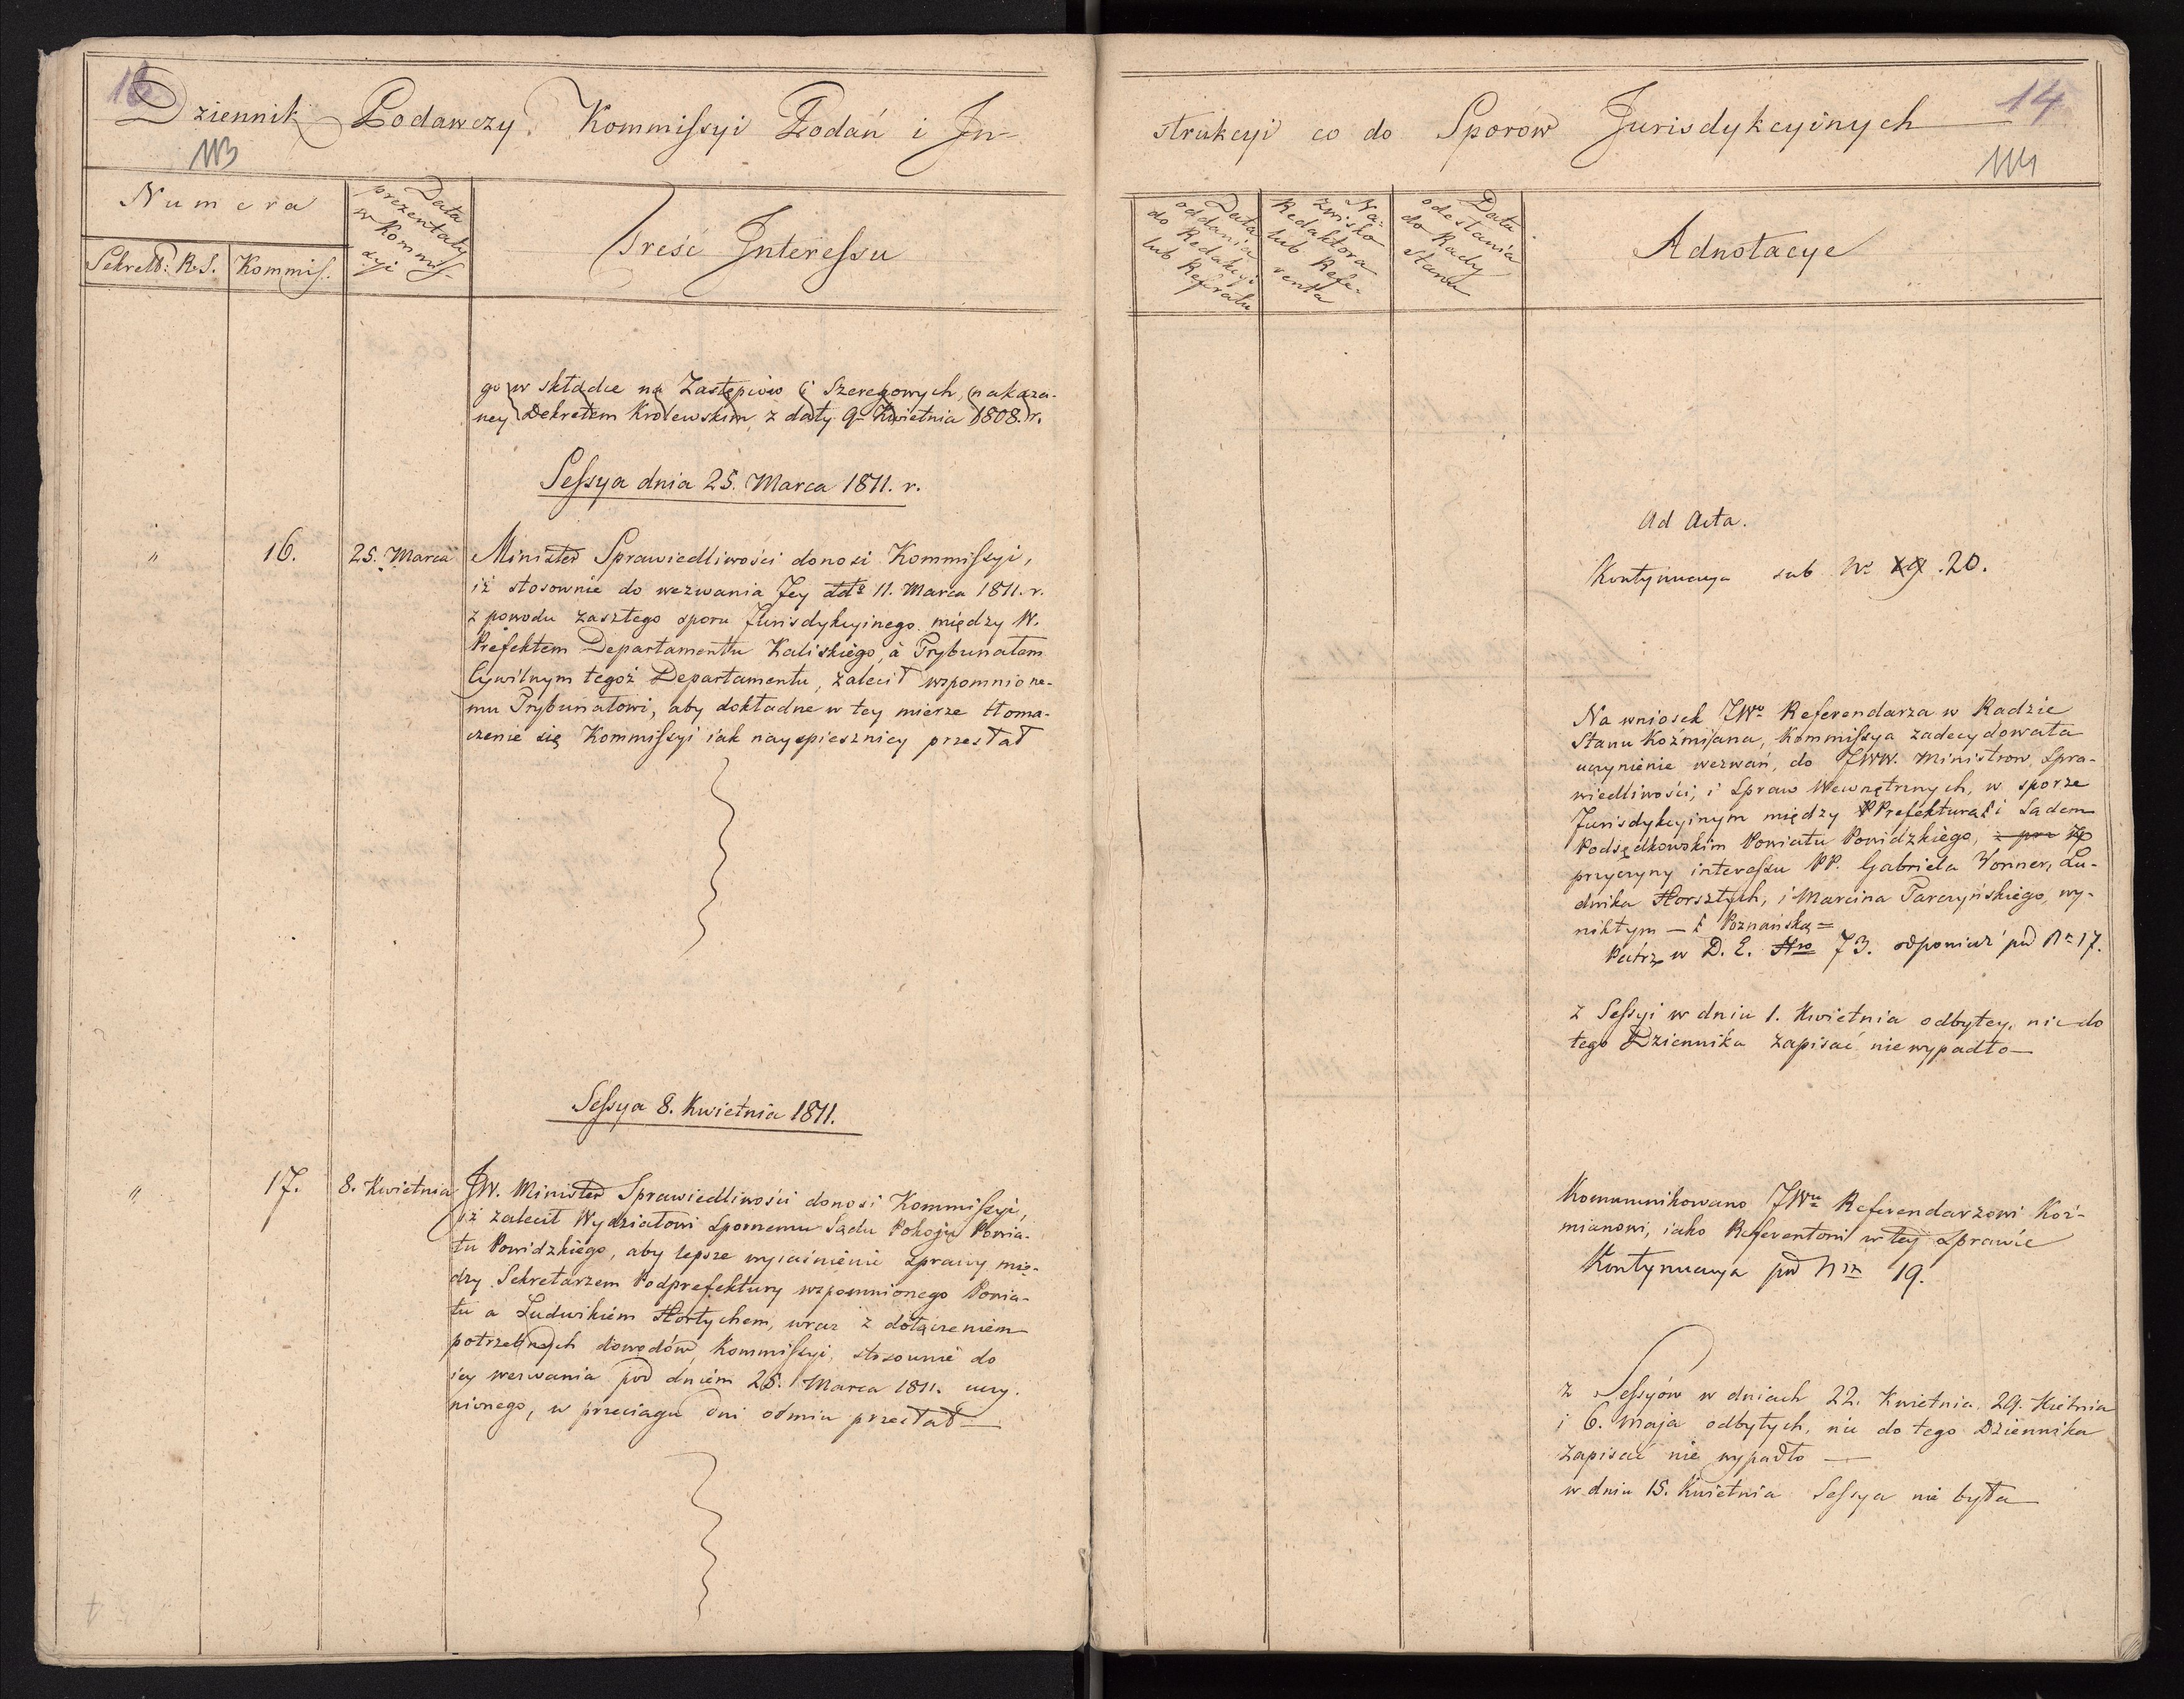 13
Dziennik Podawczy Kommissyi Podań i In-
113
Numera
Sekret: R.S.
Kommis.
Data
prezentaty
w Kommis-
syi
Treść Interessu
go w składce na Zastępców i Szeregowych, nakaza-
ney Dekretem Krolewskim z daty 9 Kwietnia 1808. r.
Sessya dnia 25. Marca 1811. r.
" 16. 25. Marca Minister Sprawiedliwości donosi Kommissyi,
iż stosownie do wezwania Jey dto 11. Marca 1811. r.
z powodu zaszłego sporu Jurisdykcyinego między W.
Prefektem Departamentu Kaliskiego, à Trybunałem
Cywilnym tegoż Departamentu, zalecił wspomnione-
mu Trybunałowi, aby dokładne w tey mierze tłoma-
czenie się Kommissyi iak nayspieszniey przesłał
Sessya 8. Kwietnia 1811.
" 17. 8. Kwietnia JW. Minister Sprawiedliwości donosi Kommissyi,
iż zalecił Wydziałowi Spornemu Sądu Pokoju Powia-
tu Powidzkiego, aby lepsze wyiaśnienie sprawy mię-
dzy Sekretarzem Podprefektury wspomnionego Powia-
tu a Ludwikiem Hortychem, wraz z dołączeniem
potrzebnych dowodów Kommissyi, stosownie do
iey wezwania pod dniem 25. Marca 1811. uczy-
nionego, w przeciągu dni ośmiu przesłał
14
strukcyi co do Sporów Jurisdykcyinych
114
Data
oddania
do Redakcyi
lub Referatu
Na-
zwisko
Redaktora
lub Refe-
renta
Data
odesłania
do Rady
Stanu
Adnotacye
Ad Acta.
Kontynuacya sub Nr 19. 20.
Na wniosek JWo Referendarza w Radzie
Stanu Koźmiana, Kommissya zadecydowała
uczynienie wezwań, do JWW. Ministrow, Spra-
wiedliwości, i Spraw Wewnętrznych, w sporze
Jurisdykcyinym między PPrefekturą i Sądem
Podsędkowskim Powiatu Powidzkiego, z
przyczyny interessu PP. Gabriela Wonner, Lu-
dwika Horsztych, i Marcina Tarczyńskiego, wy-
nikłym — Poznańską =
Patrz w D. E. Nro 73. odpowiedź pod Nr 17.
z Sessyi w dniu 1. Kwietnia odbytey, nic do
tego Dziennika zapisać nie wypadło —
Kommunikowano JWu Referendarzowi Koź-
mianowi, iako Referentowi w tey sprawie
Kontynuacya pod Nrm 19.
z Sessyów w dniach 22. Kwietnia, 29. Kwietnia
i 6. Maja odbytych, nic do tego Dziennika
zapisać nie wypadło —
w dniu 15. Kwietnia Sessya nie była —